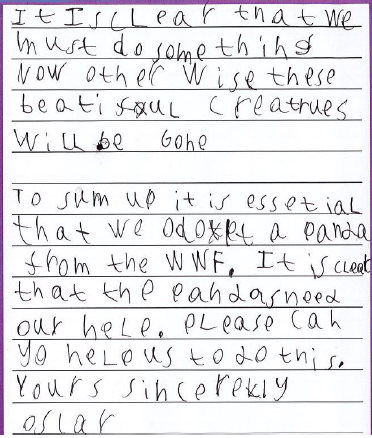 It Is cLear that we
must do something
Now other wise these
beatifxuL creatrues
will be Gone
To sum up it is essetial
that we odoxpt a panda
from the WWF. It is clear
that the pandas need
our heLp. pLease can
yo heLp us to do this.
Yours sincerekly
oscar